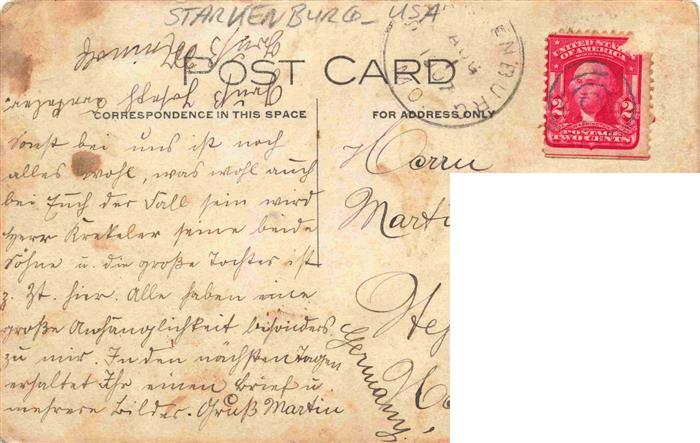 STARKENBURG - USA
POST CARD
CORRESPONDENCE IN THIS SPACE
FOR ADDRESS ONLY
ENBURG
AUG
MO.
UNITED STATES OF AMERICA
2 2
POSTAGE
TWO CENTS
Sonst bei uns ist noch
alles wohl, was wohl auch
bei Euch der Fall sein wird
Herr Krekeler seine beide
Söhne u. die große Tochter ist
z. Zt. hier. Alle haben eine
große Anhänglichkeit besonders
zu mir. In den nächsten Tagen
erhaltet Ihr einen Brief u.
mehrere Bilder. Gruß Martin
Herrn
Martin
Germany.